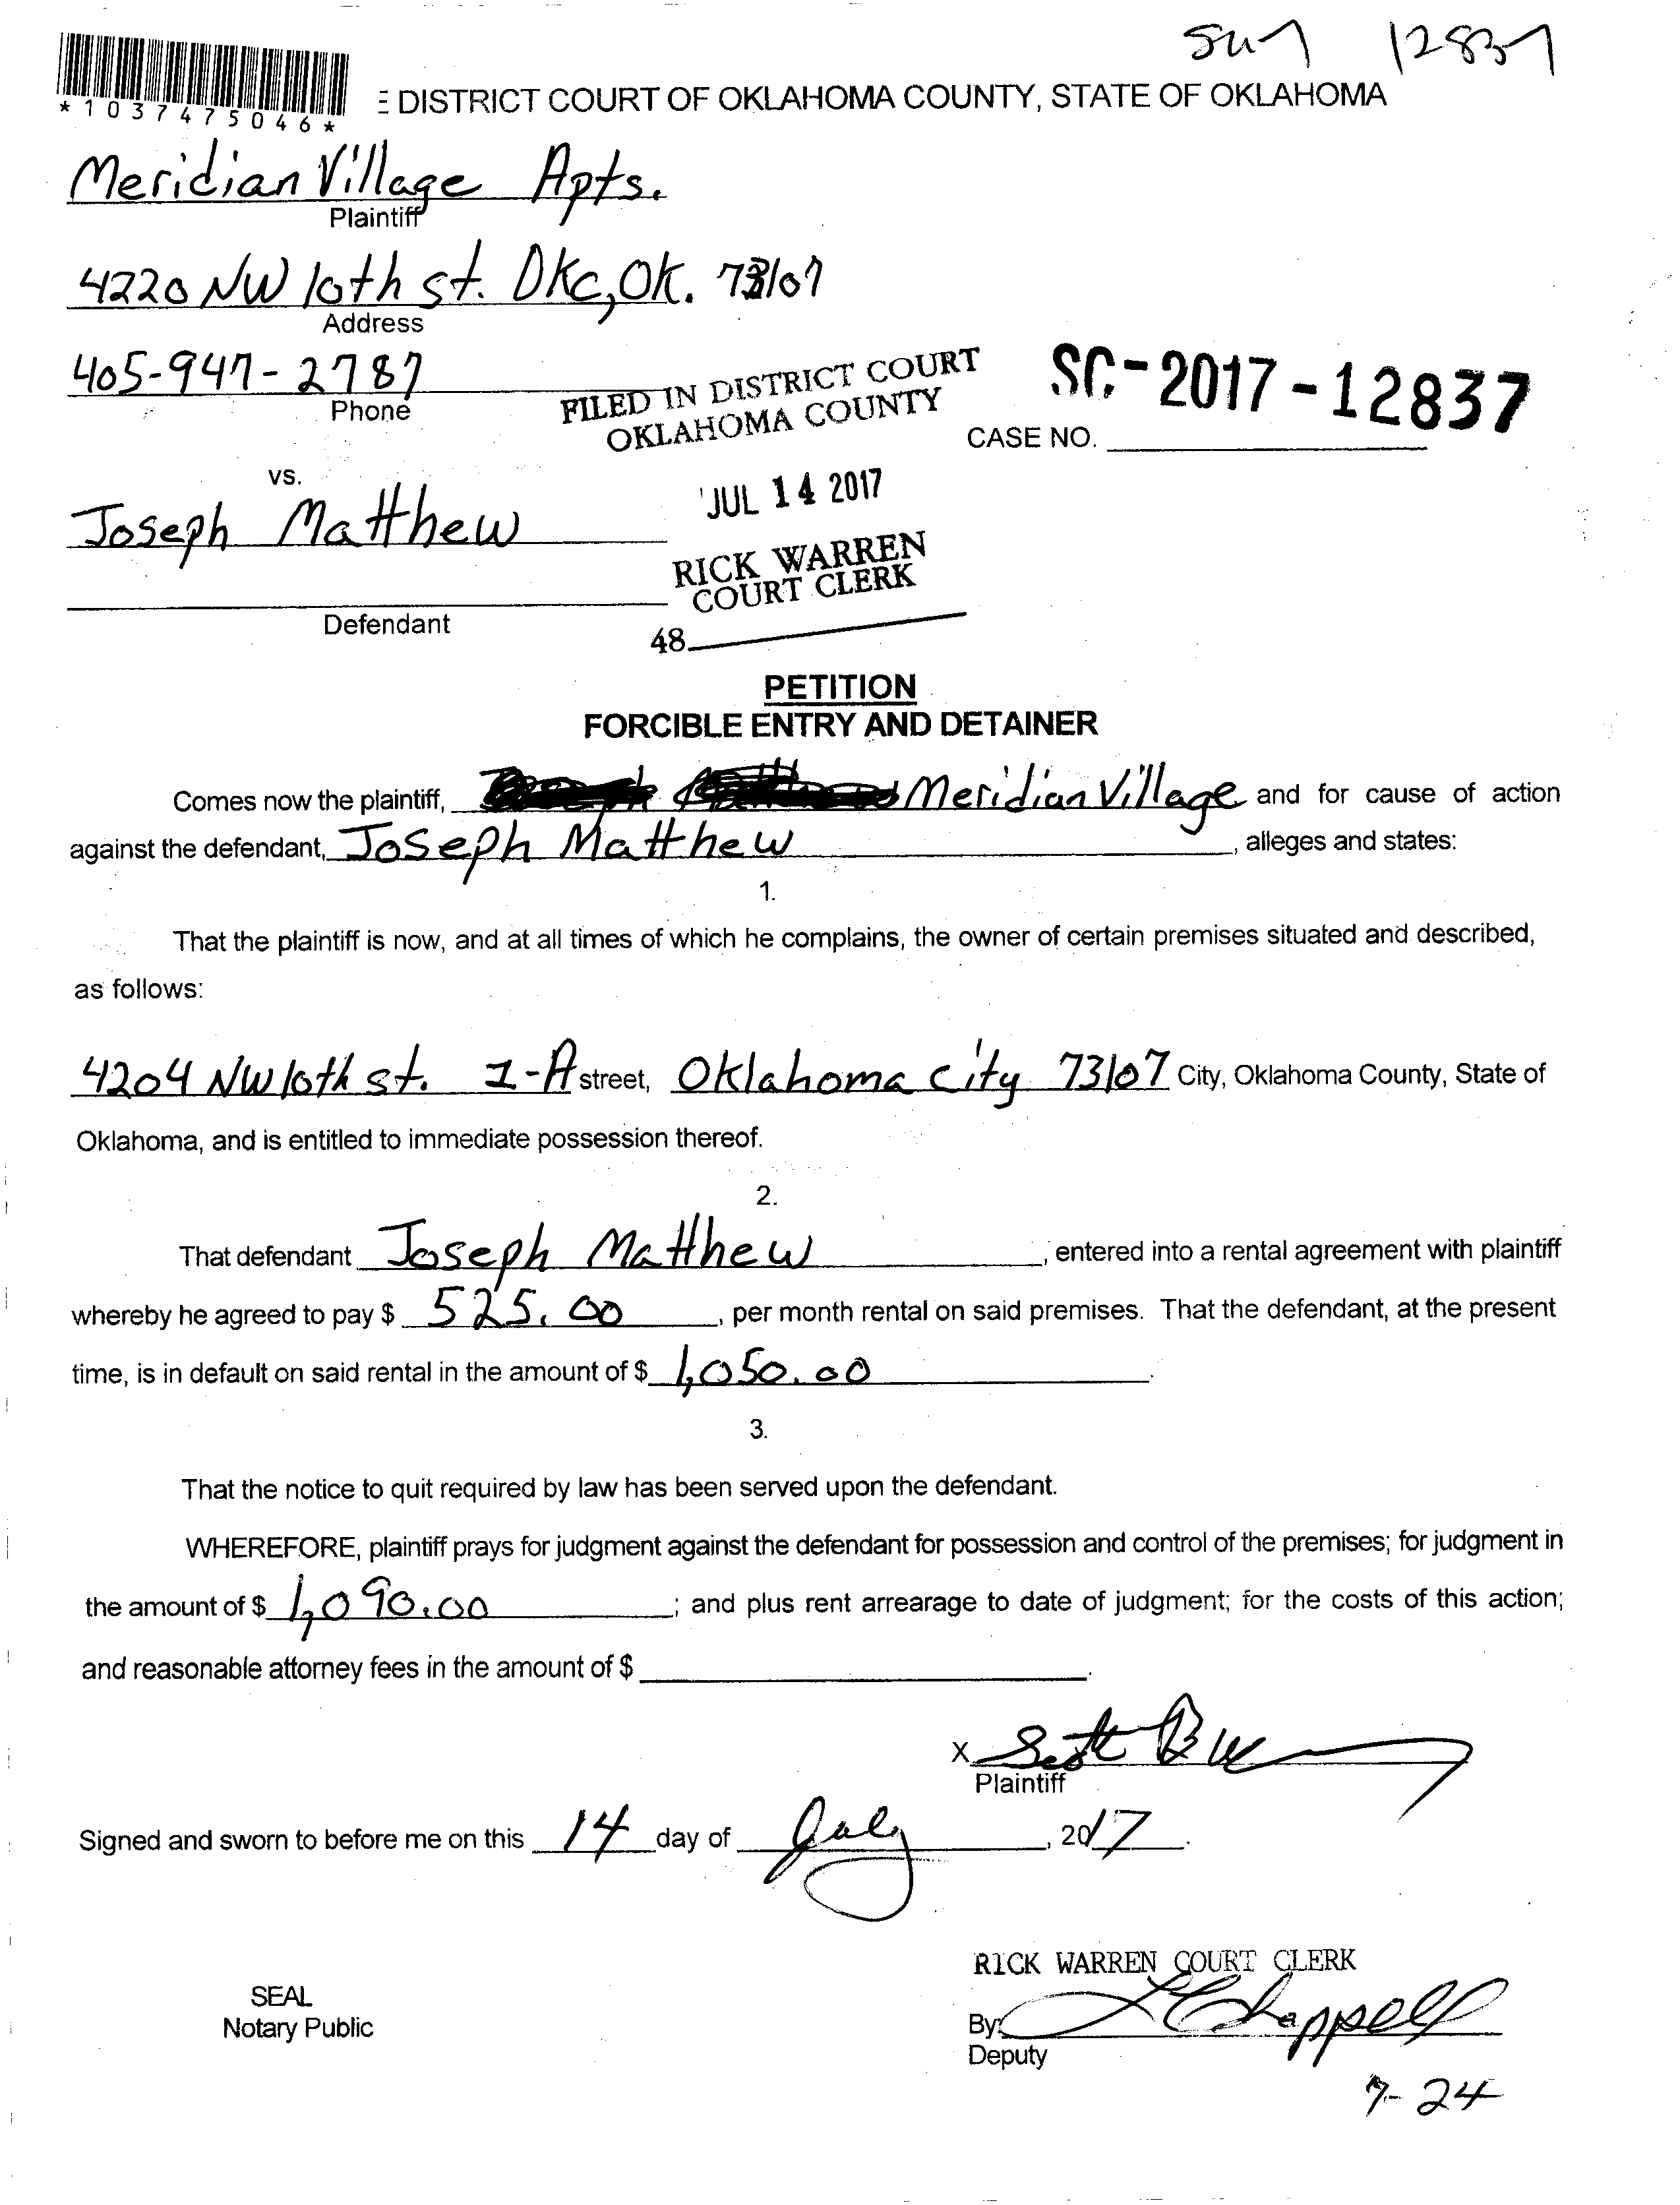 12837
*1037475046*
DISTRICT COURT OF OKLAHOMA COUNTY, STATE OF OKLAHOMA
Meridian Village Apts.
Plaintiff
4220 NW 10th st. OKC, OK. 73107
Address
405-947-2787
Phone
FILED IN DISTRICT COURT
OKLAHOMA COUNTY
SC-2017-12837
CASE NO.
vs.
JUL 14 2017
Joseph Matthew
RICK WARREN
COURT CLERK
Defendant
48
PETITION
FORCIBLE ENTRY AND DETAINER
Comes now the plaintiff, Meridian Village and for cause of action
against the defendant, Joseph Matthew, alleges and states:
1.
That the plaintiff is now, and at all times of which he complains, the owner of certain premises situated and described,
as follows:
4204 NW 10th st. 1-A street, Oklahoma city 73107 City, Oklahoma County, State of
Oklahoma, and is entitled to immediate possession thereof.
2.
That defendant Joseph Matthew, entered into a rental agreement with plaintiff
whereby he agreed to pay $ 525.00, per month rental on said premises. That the defendant, at the present
time, is in default on said rental in the amount of $ 1,050.00.
3.
That the notice to quit required by law has been served upon the defendant.
WHEREFORE, plaintiff prays for judgment against the defendant for possession and control of the premises; for judgment in
the amount of $ 1,090.00; and plus rent arrearage to date of judgment; for the costs of this action;
and reasonable attorney fees in the amount of $ .
X Scott
Plaintiff
Signed and sworn to before me on this 14 day of July, 2017.
RICK WARREN COURT CLERK
SEAL
Notary Public
By: Chappell
Deputy
7-24